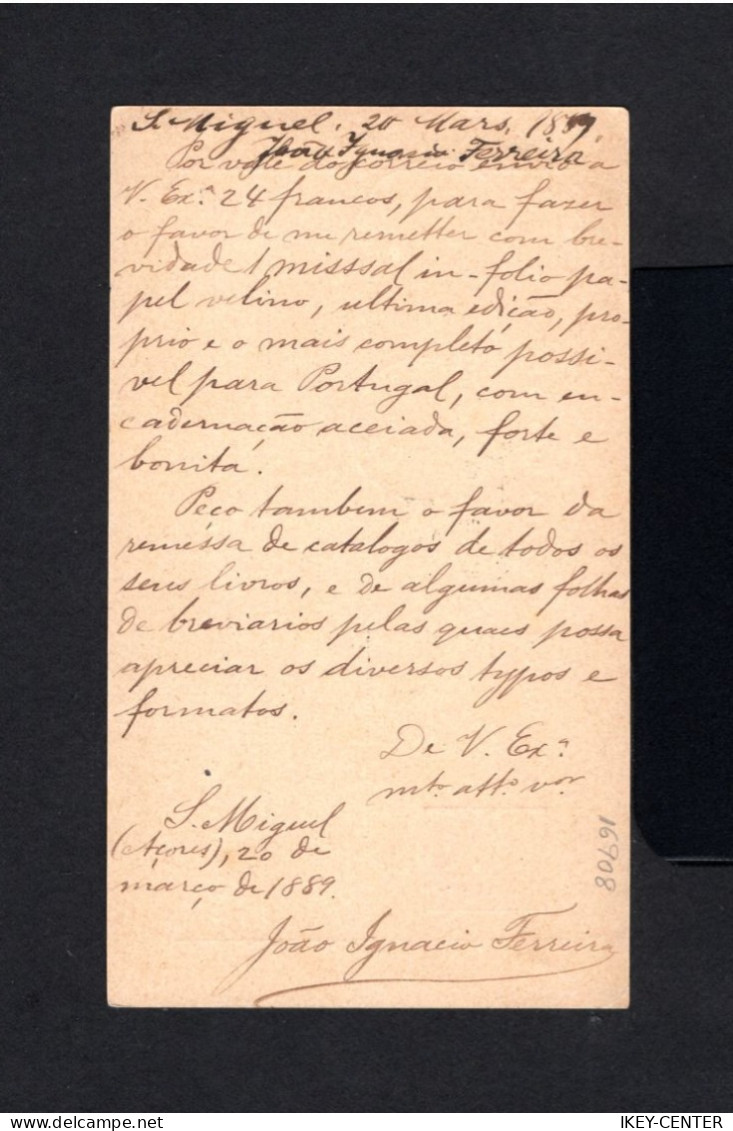 S. Miguel. 20 Mars. 1889.
João Ignacio Ferreira
Por vale do correio envio a
V. Ex.ª 24 francos, para fazer
o favor de me remetter com bre-
vidade 1 misssal in-folio pa-
pel velino, ultima edição, pro-
prio e o mais completo possi-
vel para Portugal, com en-
cadernação aceiada, forte e
bonita.
Peço tambem o favor da
remessa de catalogos de todos os
seus livros, e de algumas folhas
de breviarios pelas quaes possa
apreciar os diversos typos e
formatos.
De V. Ex.ª
mt.º att.º v.or
S. Miguel
(Açores), 20 de
março de 1889.
João Ignacio Ferreira
16708
delcampe.net
IKEY-CENTER